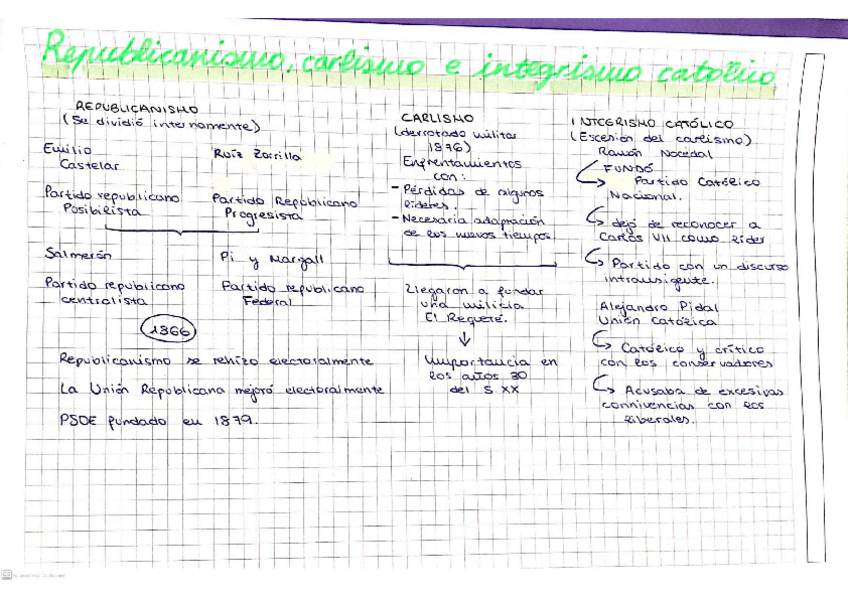 Republicanismo, carlismo e integrismo católico
REPUBLICANISMO
(Se dividió internamente)
Emilio
Castelar
Ruíz Zorrilla
Partido republicano
Posibilista
Partido Republicano
Progresista
Salmerón
Pi y Margall
Partido republicano
centralista
Partido republicano
Federal
1866
Republicanismo se rehizo electoralmente
La Unión Republicana mejoró electoralmente
PSOE fundado en 1879.
CARLISMO
(derrotado militar
1876)
Enfrentamientos
con:
- Pérdidas de algunos
líderes.
- Necesaria adaptación
de los nuevos tiempos.
Llegaron a fundar
una milicia
El Requeté.
Importancia en
los años 30
del S XX
INTEGRISMO CATÓLICO
(Escesión del carlismo)
Ramón Nocedal
FUNDÓ
Partido Católico
Nacional.
dejó de reconocer a
Carlos VII como líder
Partido con un discurso
intransigente.
Alejandro Pidal
Unión Católica
Católico y crítico
con los conservadores
Acusaba de excesivas
connivencias con los
liberales.